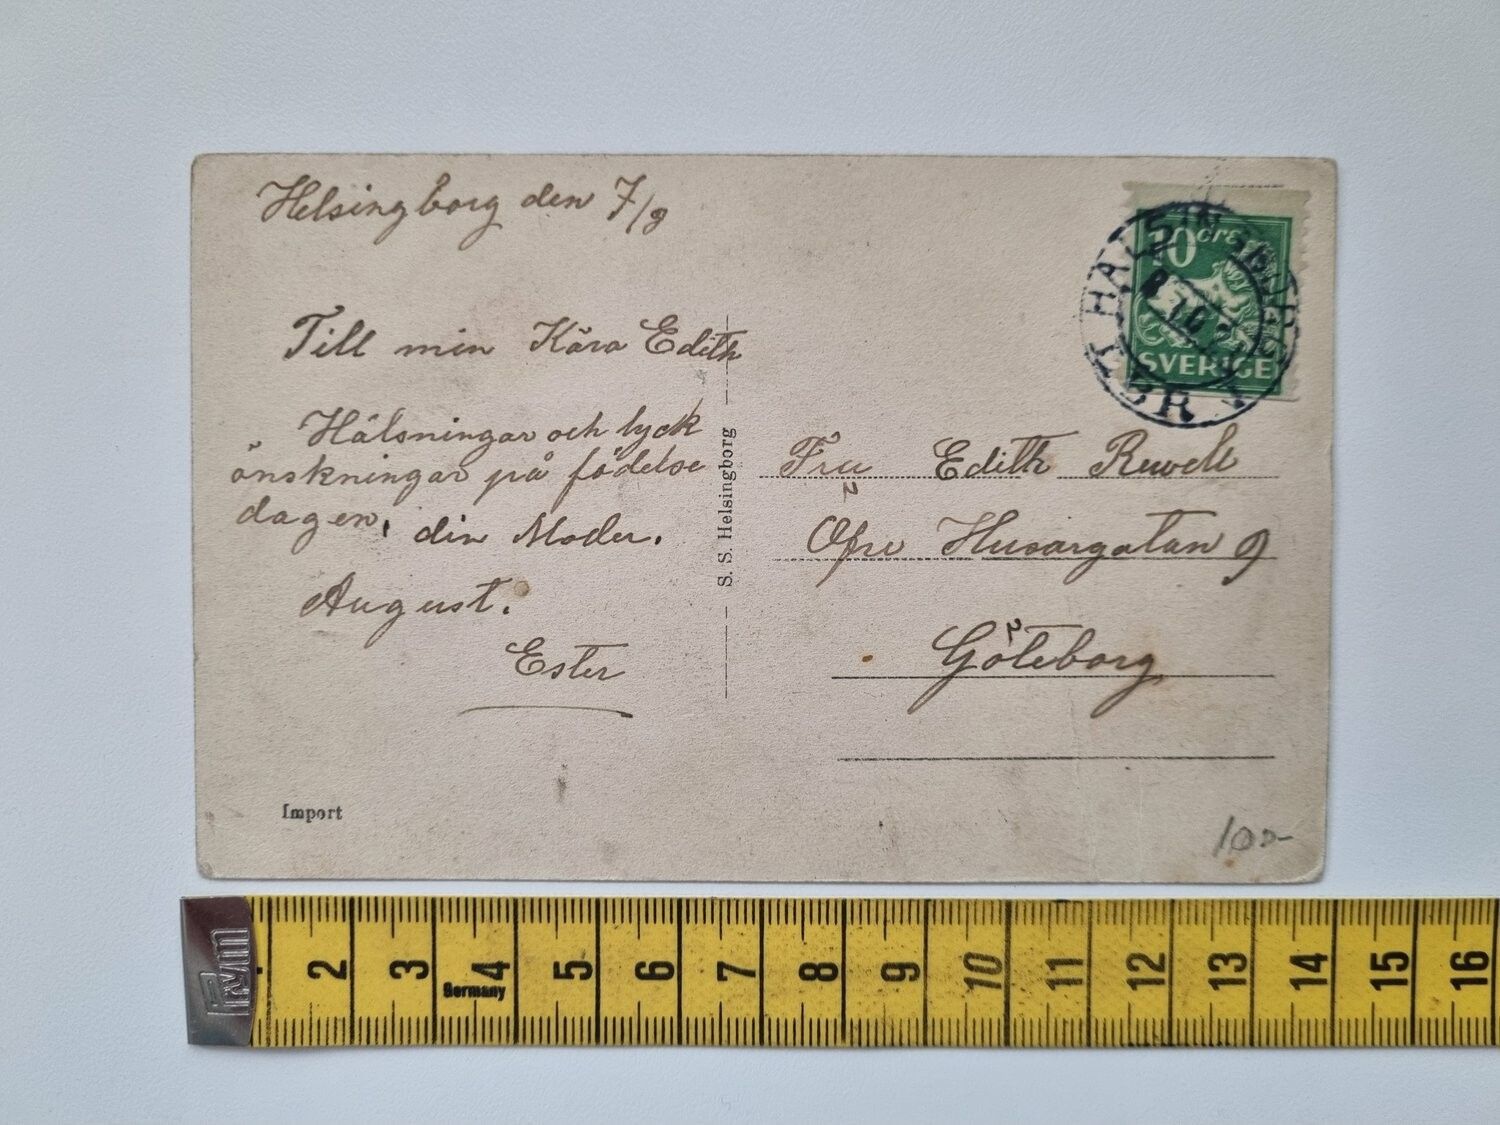 Helsingborg den 7/8
Till min Kära Edith
Hälsningar och lyck
önskningar på födelse
dagen, din Moder.
August.
Ester
Import
S. S. Helsingborg
10 öre
SVERIGE
HÄLSINGBORG
LBR 1
Fru Edith Rewell
Öfre Husargatan 9
Göteborg
10:-
Pym
2 3 4 5 6 7 8 9 10 11 12 13 14 15 16
Germany